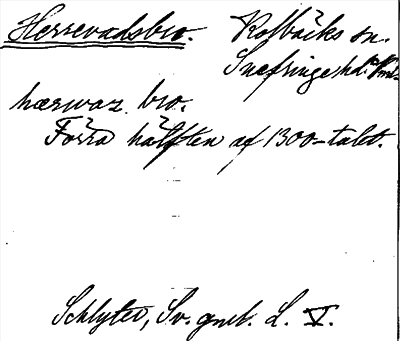 Herrevadsbro. Kolbäcks sn.
Snefringe hd. Vml.
hærwaz bro.
Förra hälften af 1300-talet.
Schlyter, Sv. gml. L. V.